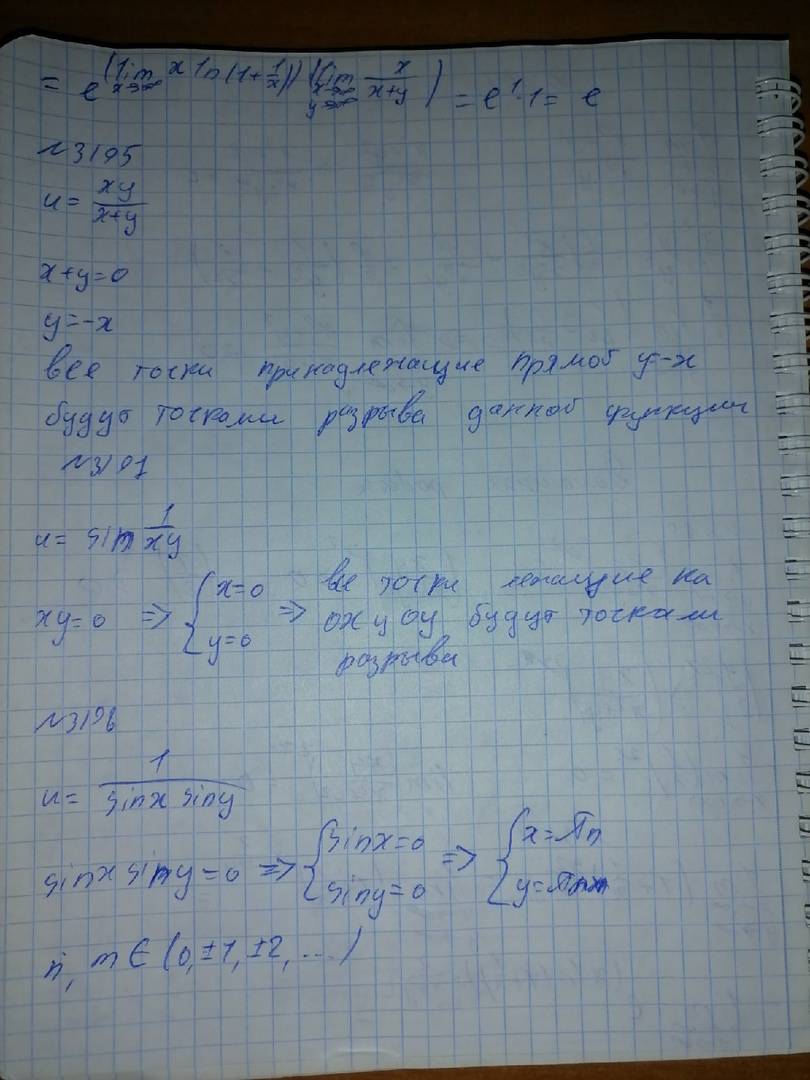 = e^{(lim_{x→∞} x ln(1+1/x))(lim_{x→∞ y→∞} x/(x+y))} = e^{1·1} = e
№3195
u = xy/(x+y)
x+y=0
y=-x
все точки принадлежащие прямой y=-x
будут точками разрыва данной функции
№3197
u = sin 1/xy
xy=0 => { x=0 y=0 => все точки лежащие на
ox и oy будут точками
разрыва
№3196
u = 1/(sinx siny)
sinx siny = 0 => { sinx=0 siny=0 => { x=πn y=πm
n, m ∈ (0, ±1, ±2, ...)